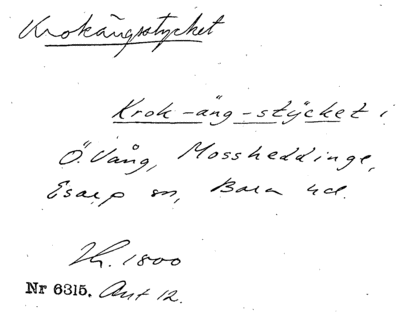 Krokängsstycket
Krok-äng-stycket i
Ö. Vång, Mossheddinge,
Esarp sn, Bara hd.
1800
Nr 6315. Akt 12.